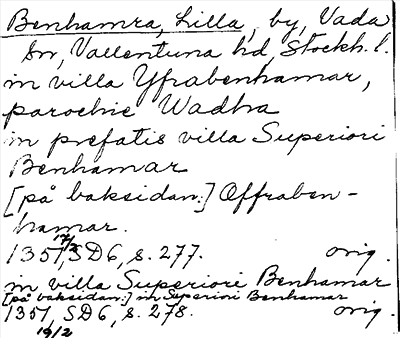 Benhamra, Lilla, by, Vada
sn, Vallentuna hd, Stockh. l.
in villa Yfrabenhamar,
parochie Wadha
in prefatis villa Superiori
Benhamar
[på baksidan:] Offraben-
hamar.
1351 17/2, SD6, s. 277. orig.
in villa Superiori Benhamar
[på baksidan:] in Superiori Benhamar
1351, SD6, s. 278. orig.
19/2